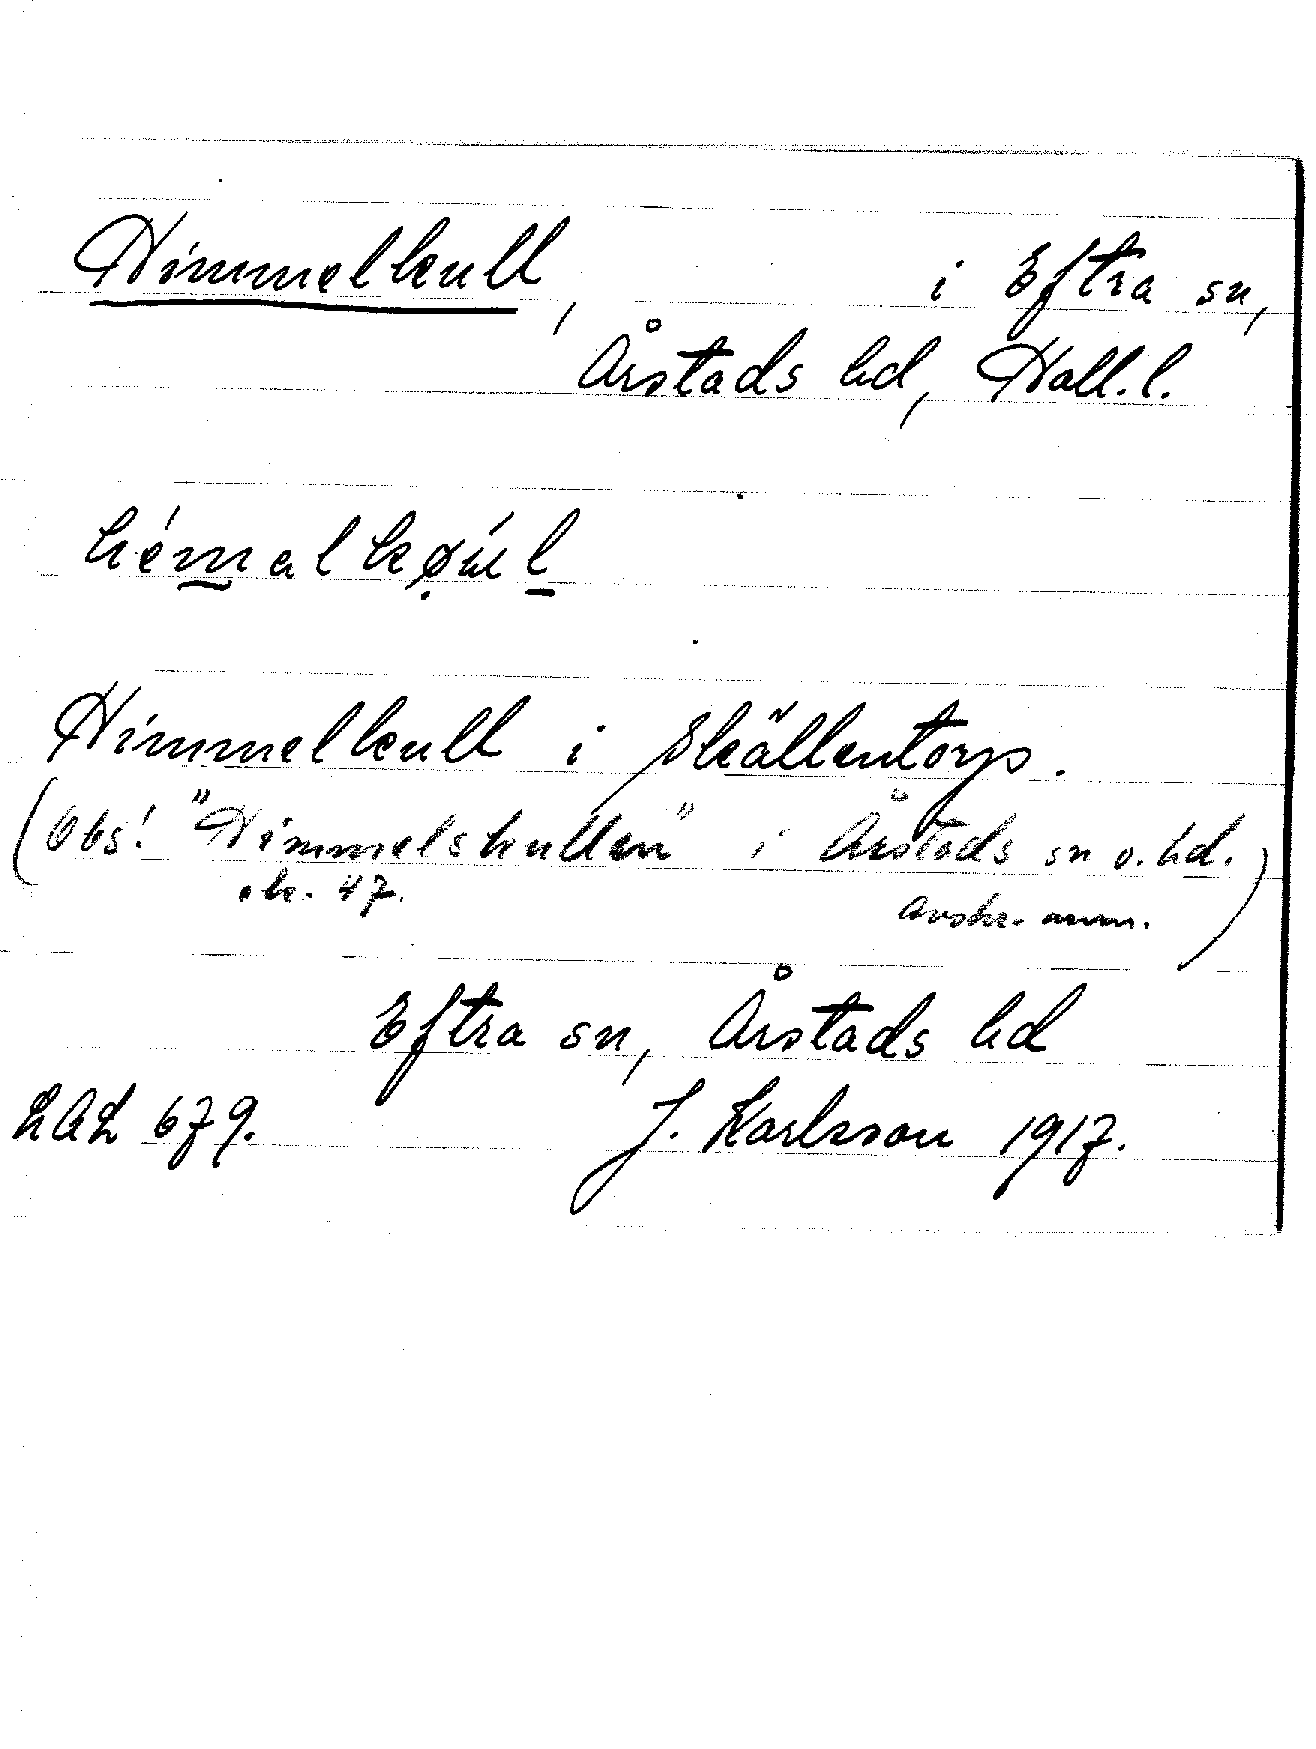 Himmelkull, i Eftra sn,
Årstads hd, Hall.l.
hémalkøu̍l
Himmelkull i Skällentorp.
(Obs! "Himmelskullen" i Årstads sn o. hd.)
ek. 47. avskr. anm.
Eftra sn, Årstads hd
LAL 679. J. Karlsson 1917.